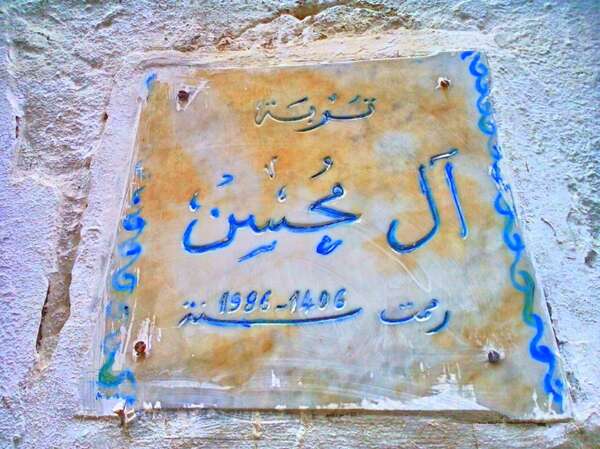 تربة
آل محسن
رممت سنة 1406-1986